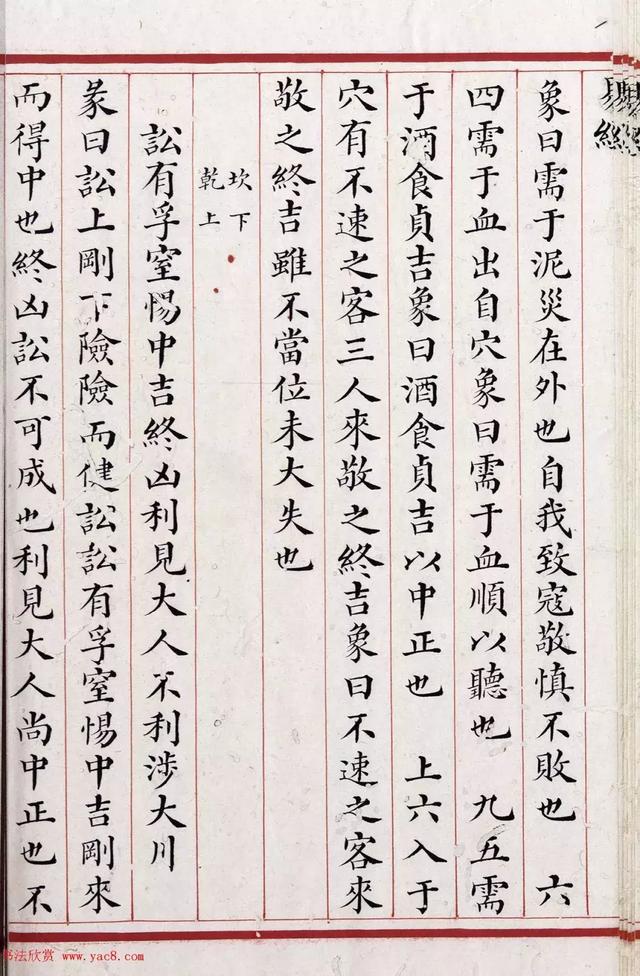 象曰需于泥災在外也自我致寇敬慎不敗也 六
四需于血出自穴象曰需于血順以聽也 九五需
于酒食貞吉象曰酒食貞吉以中正也 上六入于
穴有不速之客三人來敬之終吉象曰不速之客來
敬之終吉雖不當位未大失也
坎下
乾上
訟有孚窒惕中吉終凶利見大人不利涉大川
彖曰訟上剛下險險而健訟訟有孚窒惕中吉剛來
而得中也終凶訟不可成也利見大人尚中正也不
书法欣赏 www.yac8.com